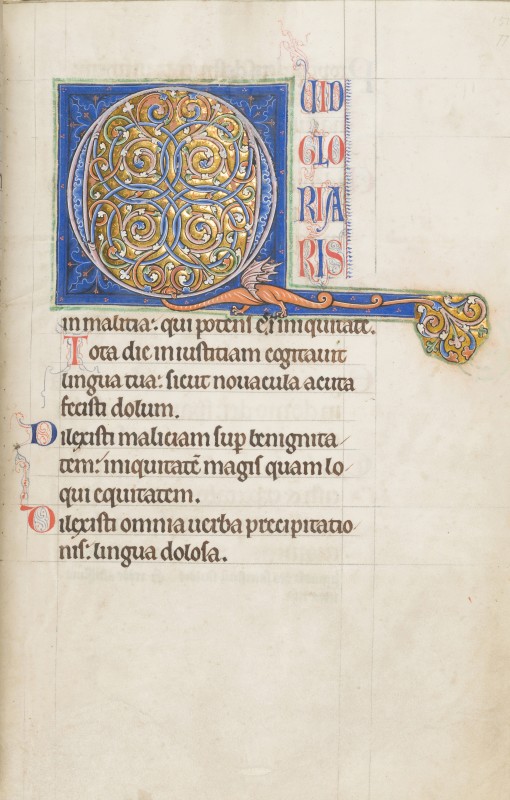 QUID
GLO
RIA
RIS
in malitia: qui potens es iniquitate.
Tota die iniustitiam cogitauit
lingua tua: sicut nouacula acuta
fecisti dolum.
Dilexisti maliciam sup benignita
tem: iniquitatē magis quam lo
qui equitatem.
Dilexisti omnia uerba precipitatio
nis: lingua dolosa.